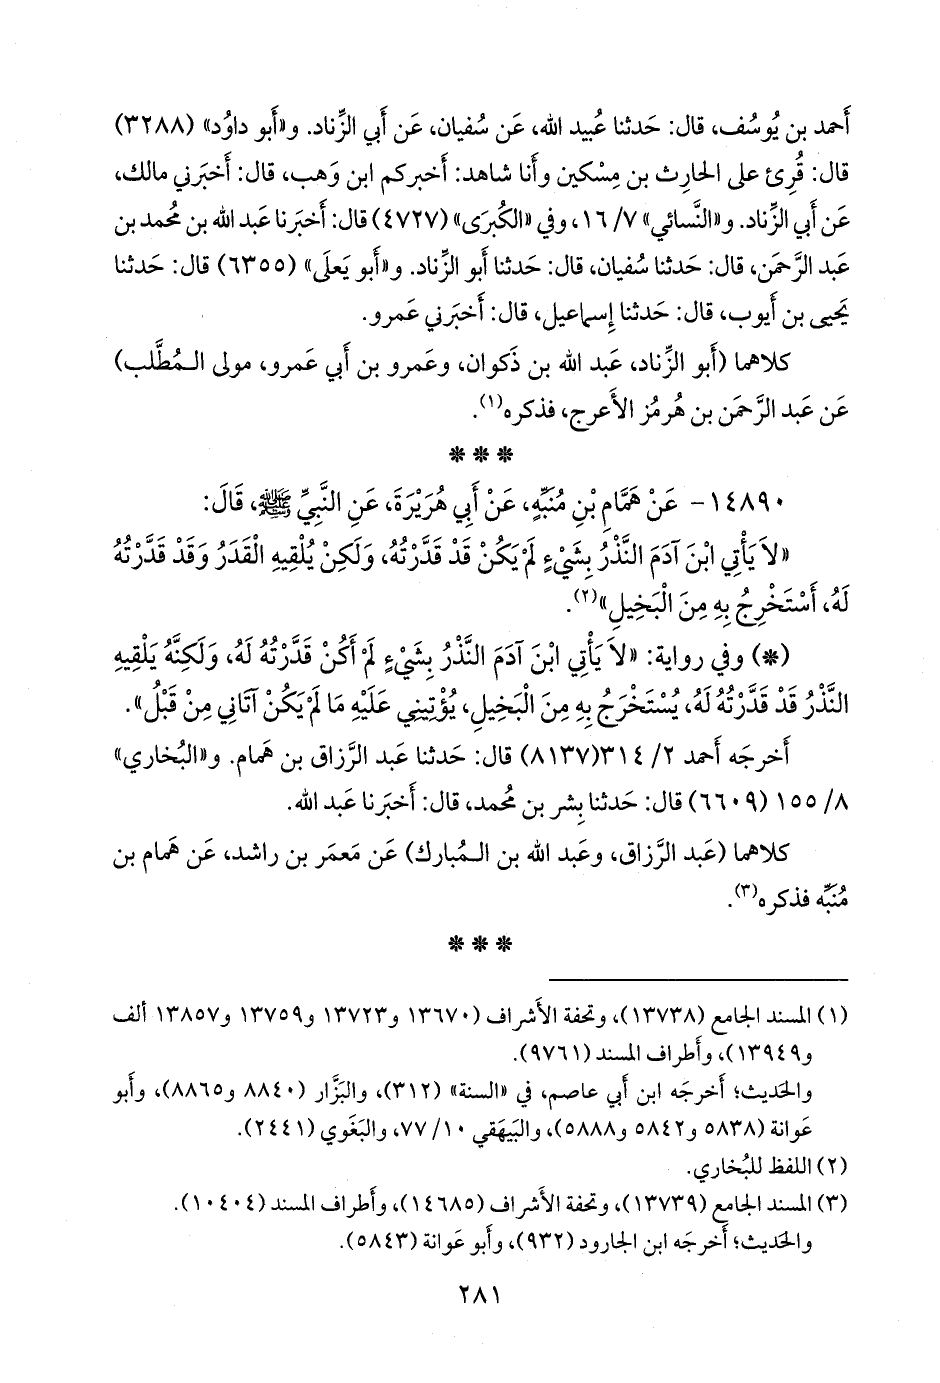 أَحمد بن يُوسُف، قال: حَدثنا عُبيد الله، عَن سُفيان، عَن أَبي الزِّناد. و«أَبو داوُد» (٣٢٨٨)
قال: قُرِئ على الحارِث بن مِسْكين وأَنا شاهد: أَخبركم ابن وَهب، قال: أَخبَرني مالك،
عَن أَبي الزِّناد. و«النَّسائي» ٧/ ١٦، وفي «الكُبرَى» (٤٧٢٧) قال: أَخبَرنا عَبد الله بن مُحمد بن
عَبد الرَّحمَن، قال: حَدثنا سُفيان، قال: حَدثنا أَبو الزِّناد. و«أَبو يَعلَى» (٦٣٥٥) قال: حَدثنا
يَحيى بن أَيوب، قال: حَدثنا إِسماعيل، قال: أَخبَرني عَمرو.
كلاهما (أَبو الزِّناد، عَبد الله بن ذَكوان، وعَمرو بن أَبي عَمرو، مولى الـمُطَّلب)
عَن عَبد الرَّحمَن بن هُرمُز الأَعرج، فذكره(١).
* * *
١٤٨٩٠- عَنْ هَمَّامِ بْنِ مُنَبِّهٍ، عَنْ أَبِي هُرَيْرَةَ، عَنِ النَّبِيِّ ﷺ، قَالَ:
«لاَ يَأْتِي ابْنَ آدَمَ النَّذْرُ بِشَيْءٍ لَمْ يَكُنْ قَدْ قَدَّرْتُهُ، وَلَكِنْ يُلْقِيهِ الْقَدَرُ وَقَدْ قَدَّرْتُهُ
لَهُ، أَسْتَخْرِجُ بِهِ مِنَ الْبَخِيلِ»(٢).
(*) وفي رواية: «لاَ يَأْتِي ابْنَ آدَمَ النَّذْرُ بِشَيْءٍ لَمْ أَكُنْ قَدَّرْتُهُ لَهُ، وَلَكِنَّهُ يَلْقِيهِ
النَّذْرُ قَدْ قَدَّرْتُهُ لَهُ، يُسْتَخْرَجُ بِهِ مِنَ الْبَخِيلِ، يُؤْتِينِي عَلَيْهِ مَا لَمْ يَكُنْ آتَانِي مِنْ قَبْلُ».
أَخرجَه أَحمد ٢/ ٣١٤(٨١٣٧) قال: حَدثنا عَبد الرَّزاق بن هَمام. و«البُخاري»
٨/ ١٥٥ (٦٦٠٩) قال: حَدثنا بِشر بن مُحمد، قال: أَخبَرنا عَبد الله.
كلاهما (عَبد الرَّزاق، وعَبد الله بن الـمُبارك) عَن مَعمَر بن راشد، عَن هَمام بن
مُنَبِّه فذكره(٣).
* * *
(١) المسند الجامع (١٣٧٣٨)، وتحفة الأَشراف (١٣٦٧٠ و١٣٧٢٣ و١٣٧٥٩ و١٣٨٥٧ ألف
و١٣٩٤٩)، وأَطراف المسند (٩٧٦١).
والحَديث؛ أَخرجَه ابن أَبي عاصم، في «السنة» (٣١٢)، والبَزَّار (٨٨٤٠ و٨٨٦٥)، وأَبو
عَوانة (٥٨٣٨ و٥٨٤٢ و٥٨٨٨)، والبَيهَقي ١٠/ ٧٧، والبَغَوي (٢٤٤١).
(٢) اللفظ للبُخاري.
(٣) المسند الجامع (١٣٧٣٩)، وتحفة الأَشراف (١٤٦٨٥)، وأَطراف المسند (١٠٤٠٤).
والحَديث؛ أَخرجَه ابن الجارود (٩٣٢)، وأَبو عَوانة (٥٨٤٣).
٢٨١